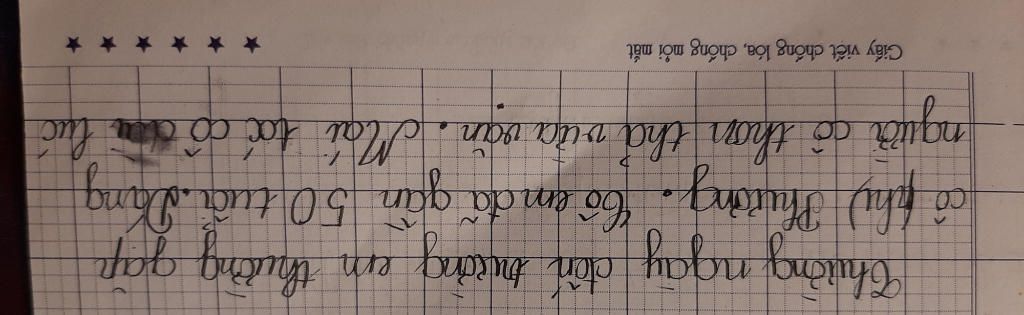 Thường ngày đến trường em thường gặp
cô (thy) Phường. Cô em đã gần 50 tuổi. Dáng
người cô thon thả vừa vặn. Mái tóc cô lúc
Giấy viết chống lóa, chống mỏi mắt